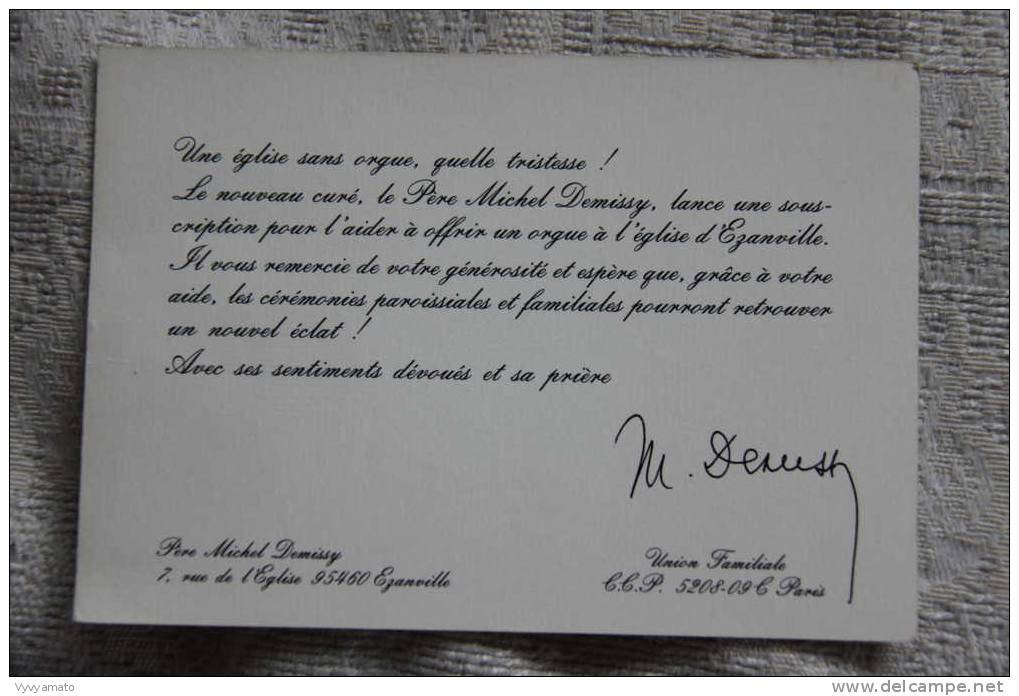 Une église sans orgue, quelle tristesse !
Le nouveau curé, le Père Michel Demissy, lance une sous-
cription pour l'aider à offrir un orgue à l'église d'Ezanville.
Il vous remercie de votre générosité et espère que, grâce à votre
aide, les cérémonies paroissiales et familiales pourront retrouver
un nouvel éclat !
Avec ses sentiments dévoués et sa prière
M. Demissy
Père Michel Demissy
7, rue de l'Eglise 95460 Ezanville
Union Familiale
C.C.P. 5208-09 C Paris
Vyvyamato
www.delcampe.net